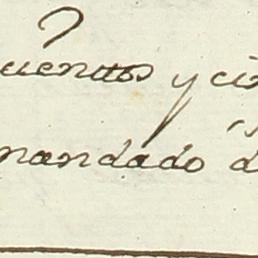 cuentos y ci
mandado d